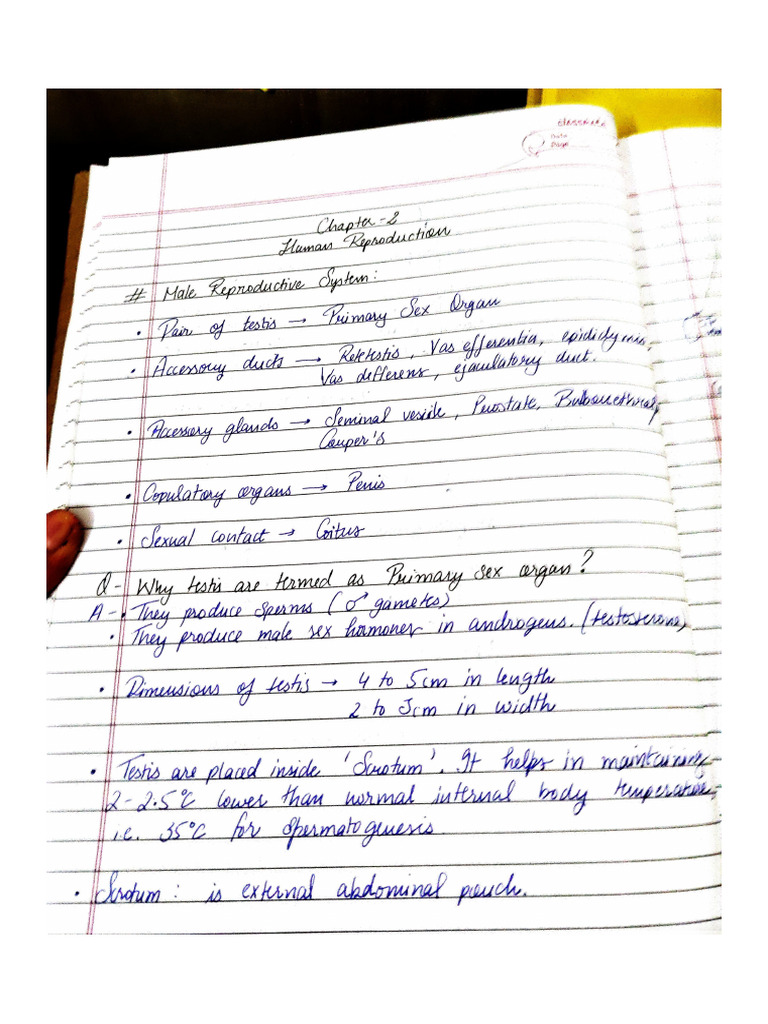 classmate
Date
Page
Chapter-2
Human Reproduction
# Male Reproductive System:
• Pair of testis → Primary Sex Organ
• Accessory ducts → Retetestis, Vas efferentia, epididymis,
Vas differens, ejaculatory duct.
• Accessory glands → Seminal vesicle, Prostate, Bulbourethral,
Couper's
• Copulatory organs → Penis
• Sexual contact → Coitus
Q- Why testis are termed as Primary sex organ?
A- • They produce sperms (♂ gametes)
• They produce male sex hormones in androgens. (testosterone)
• Dimensions of testis → 4 to 5cm in length
2 to 3cm in width
• Testis are placed inside 'Scrotum'. It helps in maintaining
2-2.5°C lower than normal internal body temperature,
i.e. 35°C for spermatogenesis
• Scrotum: is external abdominal pouch.